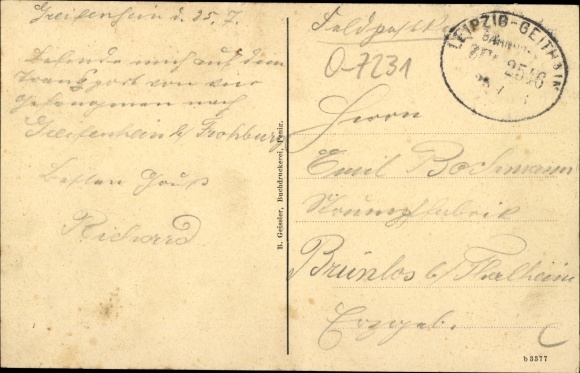 Greifenhein d. 25. 7.
Befinde mich auf dem
Transport von
Gefangenen nach
Greifenhein b/ Frohburg
Besten Gruß
Richard
B. Geissler, Buchdruckerei, Penig.
Feldpost
O-7231
LEIPZIG-GEITHAIN
BAHNPOST
ZUG 2546
25 7
Herrn
Emil Bochmann
Strumpffabrik
Brünlos b/ Thalheim
Erzgeb.
b 3377